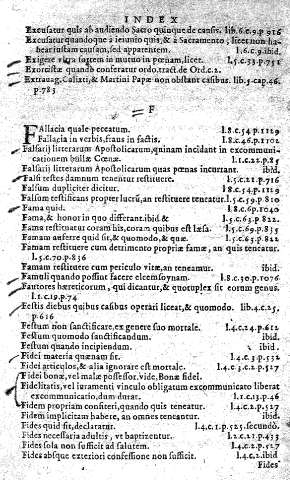 INDEX
Excusatur quis ab audiendo Sacro quinque de causis. lib.6.c.9.p 916
Excusatur quandoque à ieiunio quis, & à Sacramento, licet non ha-
beat iustam causam, sed apparentem. l.6.c.9.ibid.
Exigere vltra sortem in mutuo in pœnam, licet. l.5.c.33.p.751
Exorcistæ quando conferatur ordo, tract. de Ord.c.2.
Extrauag. Calixti, & Martini Papæ non obstant casibus. lib.5.cap.46.
p.783
F
Fallacia quale peccatum. l.8.c.54.p.1129
Fallacia in verbis, fraus in factis. l.8.c.46.p.1102
Falsarij litterarum Apostolicarum, quinam incidant in excommuni-
cationem bullæ Cœnæ. l.1.c.22.p.85
Falsarij litterarum Apostolicarum quas pœnas incurrant. ibid.
Falsi testes damnum tenentur restituere. l.5.c.21.p.716
Falsum dupliciter dicitur. l.8.c.54.p.1129
Falsum testificans propter lucrū, an restituere teneatur. l.5.c.59.p.810
Fama quid. l.8.c.6p.1040
Fama, & honor in quo differant. ibid & l.5.c.63.p.822.
Fama restituatur coram his, coram quibus est læsa. l.5.c.69.p.835
Famam auferre quid sit, & quomodo, & quæ. l.5.c.63.p.822
Famam restituere cum detrimento propriæ famæ, an quis teneatur.
l.5.c.70.p.836
Famam restituere cum periculo vitæ, an teneamur. ibid.
Famuli quando possint facere eleemosynam. l.8.c.30.p.1076
Fautores hæreticorum, qui dicantur, & quotuplex sit eorum genus.
l.1.c.19.p.74
Festis diebus quibus casibus operari liceat, & quomodo. lib.4.c.25.
p.616
Festum non sanctificare, ex genere suo mortale. l.4.c.24.p.612
Festum quomodo sanctificandum. ibid.
Festum quando incipiendum. ibid.
Fidei materia quænam sit. l.4.c.3.p.532
Fidei articulos, & alia ignorare est mortale. l.4.c.3.c.2.p.527
Fidei bonæ, vel malæ possessor. vide, Bonæ fidei.
Fidelitatis, vel iuramenti vinculo obligatum excommunicato liberat
excommunicatio, dum durat. l.1.c.13.p.46
Fidem propriam confiteri, quando quis teneatur. l.4.c.2.p.527
Fidem implicitam habere, an omnes teneantur. ibid.
Fides quid sit, declaratur. l.4.c.1.p.525.secundò.
Fides necessaria adultis, vt baptizentur. l.2.c.21.p.433
Fides sola non sufficit ad salutem. l.4.c.2.p.527
Fides absque exteriori confessione non sufficit. l.4.c.2.ibid
Fides